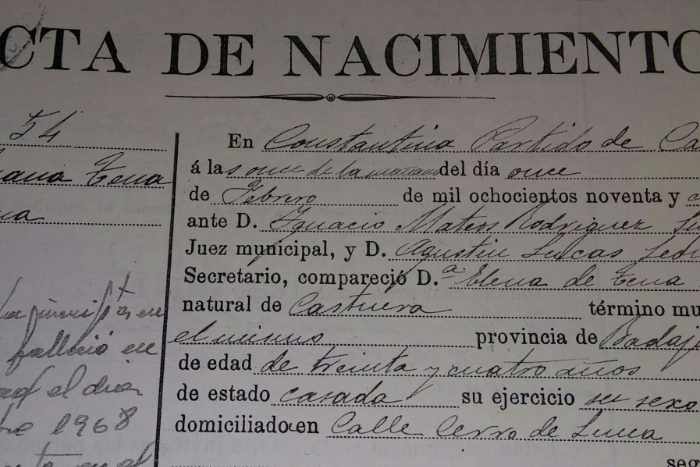 CTA DE NACIMIENTO
54
En Constantina Partido de Ca
á las once de la mañana del día once
ana Tena
de Febrero de mil ochocientos noventa y
na
ante D. Ignacio Mateos Rodriguez
Juez municipal, y D. Agustin Lucas
Secretario, compareció D.ª Elena de Tena
natural de Castuera término mu
el mismo provincia de Badaj
falleció en
de edad de treinta y cuatro años
el dia
de estado casada su ejercicio su sexo
1968
domiciliado en Calle Cerro de
en el
seg